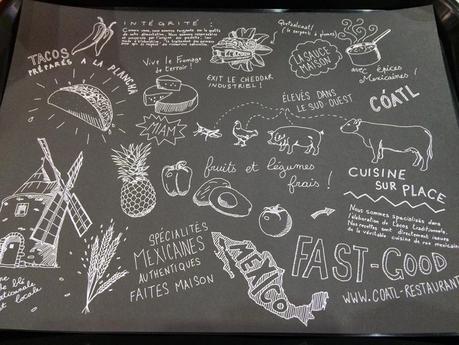 INTÉGRITÉ :
TACOS
PRÉPARÉS À LA PLANCHA
Vive le Fromage
de terroir !
EXIT LE CHEDDAR
INDUSTRIEL !
Quetzalcoatl
(le serpent à plumes)
LA SAUCE
MAISON
avec épices
Mexicaines !
MIAM
ÉLEVÉS DANS
LE SUD OUEST
CÓATL
CUISINE
SUR PLACE
fruits et légumes
frais !
Nous sommes spécialisés dans
l'élaboration de tacos traditionnels.
Nos recettes sont directement issues
de la véritable cuisine de rue mexicaine
SPÉCIALITÉS
MEXICAINES
AUTHENTIQUES
FAITES MAISON
MEXICO
FAST-GOOD
WWW.COATL-RESTAURANT
de blé
et locale